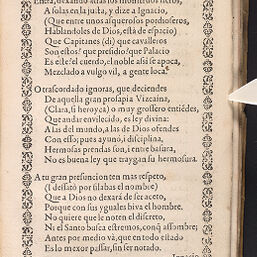 Entra, dexando atras los monteriles fieros,
A solas en la justa, y dize a Ignacio,
(Que entre vnos asquerosos pordioseros,
Hablandoles de Dios, està de espacio)
Que Capitanes (di) que caualleros
Son estos? que presidio? que Palacio
Es este? el cuerdo, el noble assi se apoca,
Mezclado a vulgo vil, a gente loca?
O trascordado ignoras, que deciendes
De aquella gran prosapia Vizcaina,
(Clara, si heroyca) o muy grossero entiẽdes,
Que andar enuilecido, es ley diuina:
A las del mundo, a las de Dios ofendes
Con esso; pues ayunò, i disciplina,
Hermosas prendas son, i entre basura,
No es buena ley que traygan su hermosura.
A tu gran presuncion ten mas respeto,
(I dessatò por silabas el nombre)
Que a Dios no dexarà de ser aceto,
Porque con sus yguales biua el hombre.
No quiere que le noten el discreto,
Ni el Santo busca estremos, cõq̃ assombre;
Antes por medio và, que en todo estado
Es lo mexor passar, sin ser notado.
Ignacio